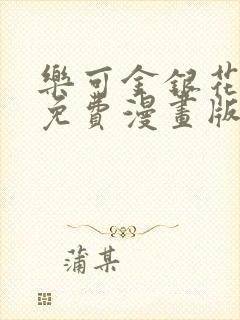 樂可金銀花
免費漫畫版
蒲某